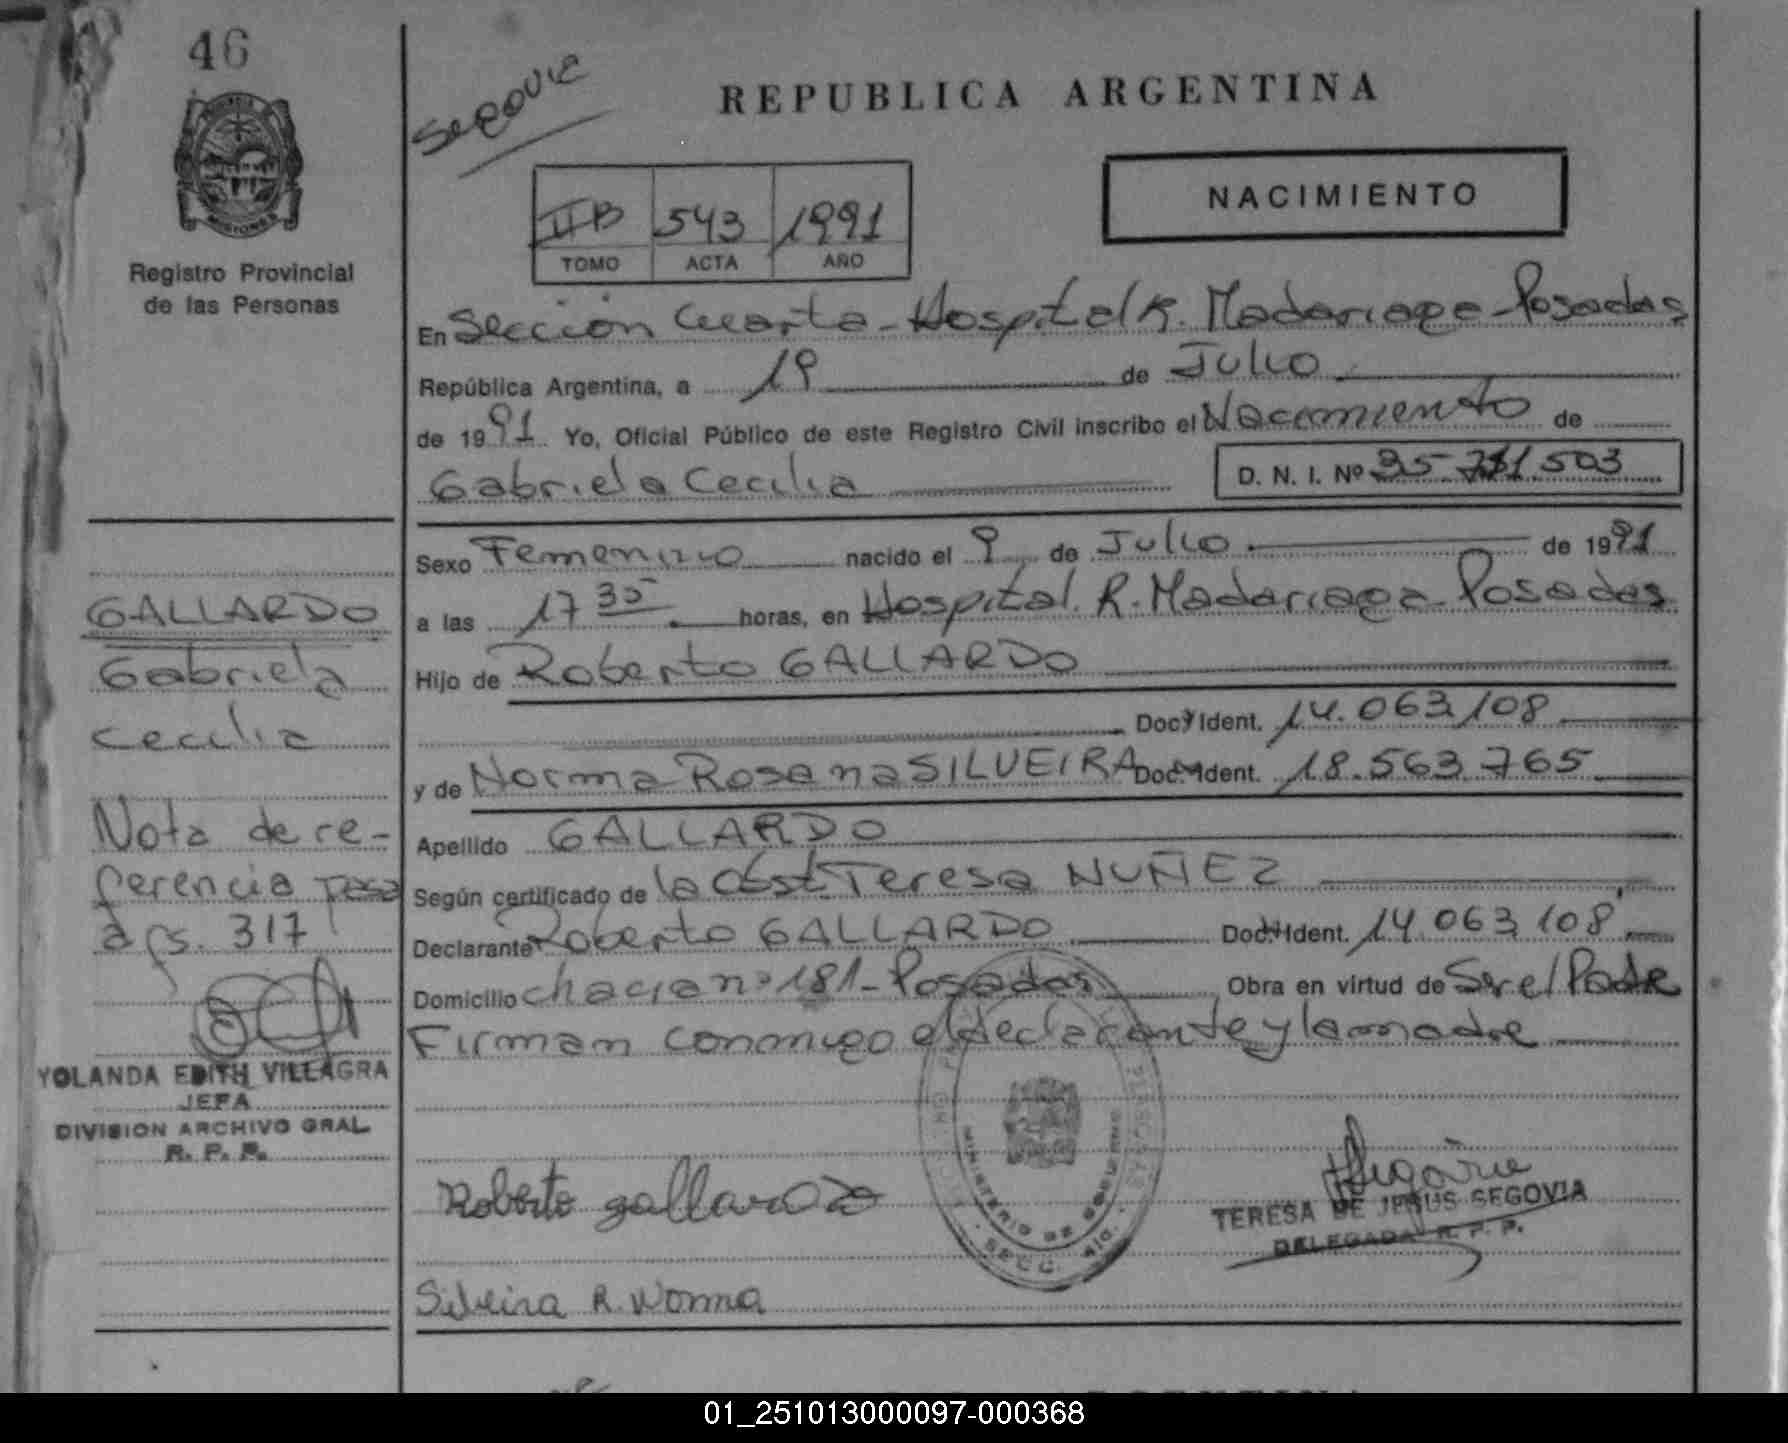 46
Segovia
REPUBLICA ARGENTINA
MISIONES
Registro Provincial
de las Personas
IIB 543 1991
TOMO ACTA AÑO
NACIMIENTO
En Sección Cuarta - Hospital R. Madariaga - Posadas
República Argentina, a 19 de Julio
de 1991 Yo, Oficial Público de este Registro Civil inscribo el Nacimiento de
Gabriela Cecilia D. N. I. Nº 35.711.503
Sexo Femenino nacido el 9 de Julio de 1991
a las 17 35 horas, en Hospital. R. Madariaga - Posadas
Hijo de Roberto GALLARDO
Doc. Ident. 14.063.108
y de Norma Rosana SILVEIRA Doc. Ident. 18.563.765
Apellido GALLARDO
Según certificado de la Obst. Teresa NUÑEZ
Declarante Roberto GALLARDO Doc. Ident. 14.063.108
Domicilio chacra nº 181 - Posadas Obra en virtud de Ser el Padre
Firman conmigo el declarante y la madre
GALLARDO
Gabriela
Cecilia
Nota de re-
ferencia pasa
a fs. 317
YOLANDA EDITH VILLAGRA
JEFA
DIVISION ARCHIVO GRAL
R. P. P.
MINISTERIO DE GOBIERNO
SECC. 4ta.
Roberto gallardo
Segovia
TERESA DE JESUS SEGOVIA
DELEGADA R. P. P.
Silveira R. Norma
01_251013000097-000368